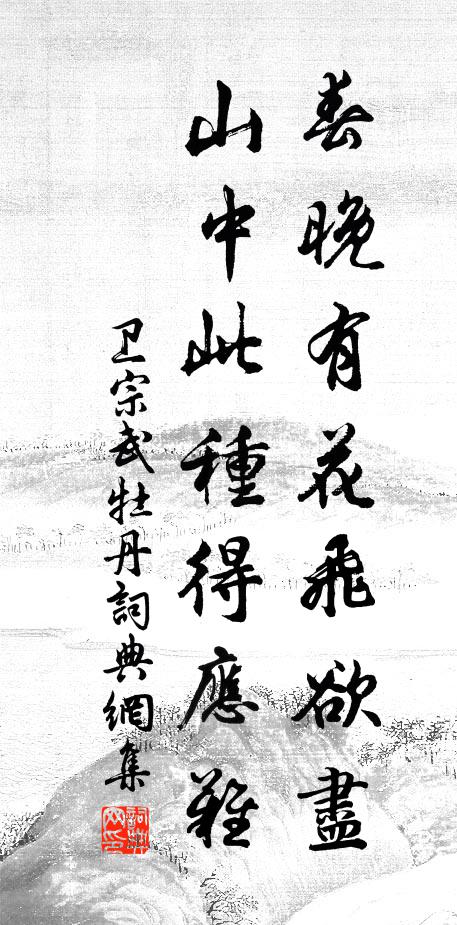 春晚有花飛欲盡
山中此種得應難
卫宗武牡丹詞典網集